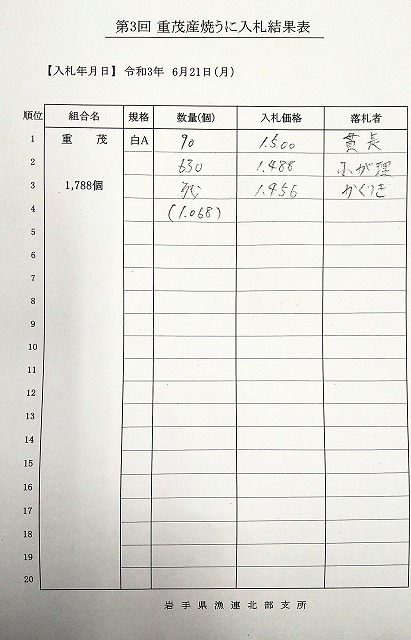 第3回 重茂産焼うに入札結果表
【入札年月日】 令和3年 6月21日(月)
順位 組合名 規格 数量(個) 入札価格 落札者
1 重 茂 白A 90 1.500
2 630 1.488
3 1,788個 残 1.456 かくりき
4 (1.068)
5
6
7
8
9
10
11
12
13
14
15
16
17
18
19
20
岩手県漁連北部支所